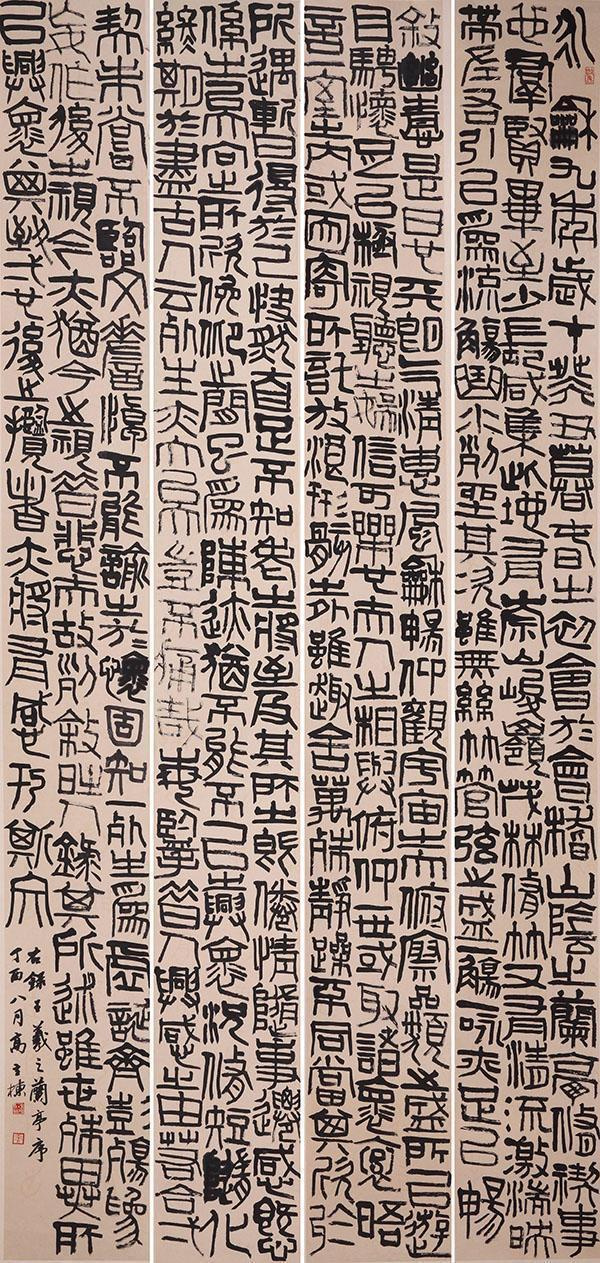 永龢九年歲在癸丑暮春之初會於會稽山陰之蘭亭脩禊事
也羣賢畢至少長咸集此地有崇山峻嶺茂林脩竹又有清流激湍映
帶左右引以為流觴曲水列坐其次雖無絲竹管弦之盛一觴一詠亦足以暢
敘幽情是日也天朗氣清惠風龢暢仰觀宇宙之大俯察品類之盛所以遊
目騁懷足以極視聽之娛信可樂也夫人之相與俯仰一世或取諸懷抱晤
言一室之內或因寄所託放浪形骸之外雖趣舍萬殊靜躁不同當其欣於
所遇暫得於己快然自足不知老之將至及其所之既倦情隨事遷感慨
係之矣向之所欣俛仰之間已為陳迹猶不能不以之興懷況脩短隨化
終期於盡古人云死生亦大矣豈不痛哉每攬昔人興感之由若合一
契未嘗不臨文嗟悼不能喻之於懷固知一死生為虛誕齊彭殤為
妄作後之視今亦猶今之視昔悲夫故列敘時人錄其所述雖世殊事異所
以興懷其致一也後之攬者亦將有感於斯文
右錄王羲之蘭亭序
丁酉八月高棟